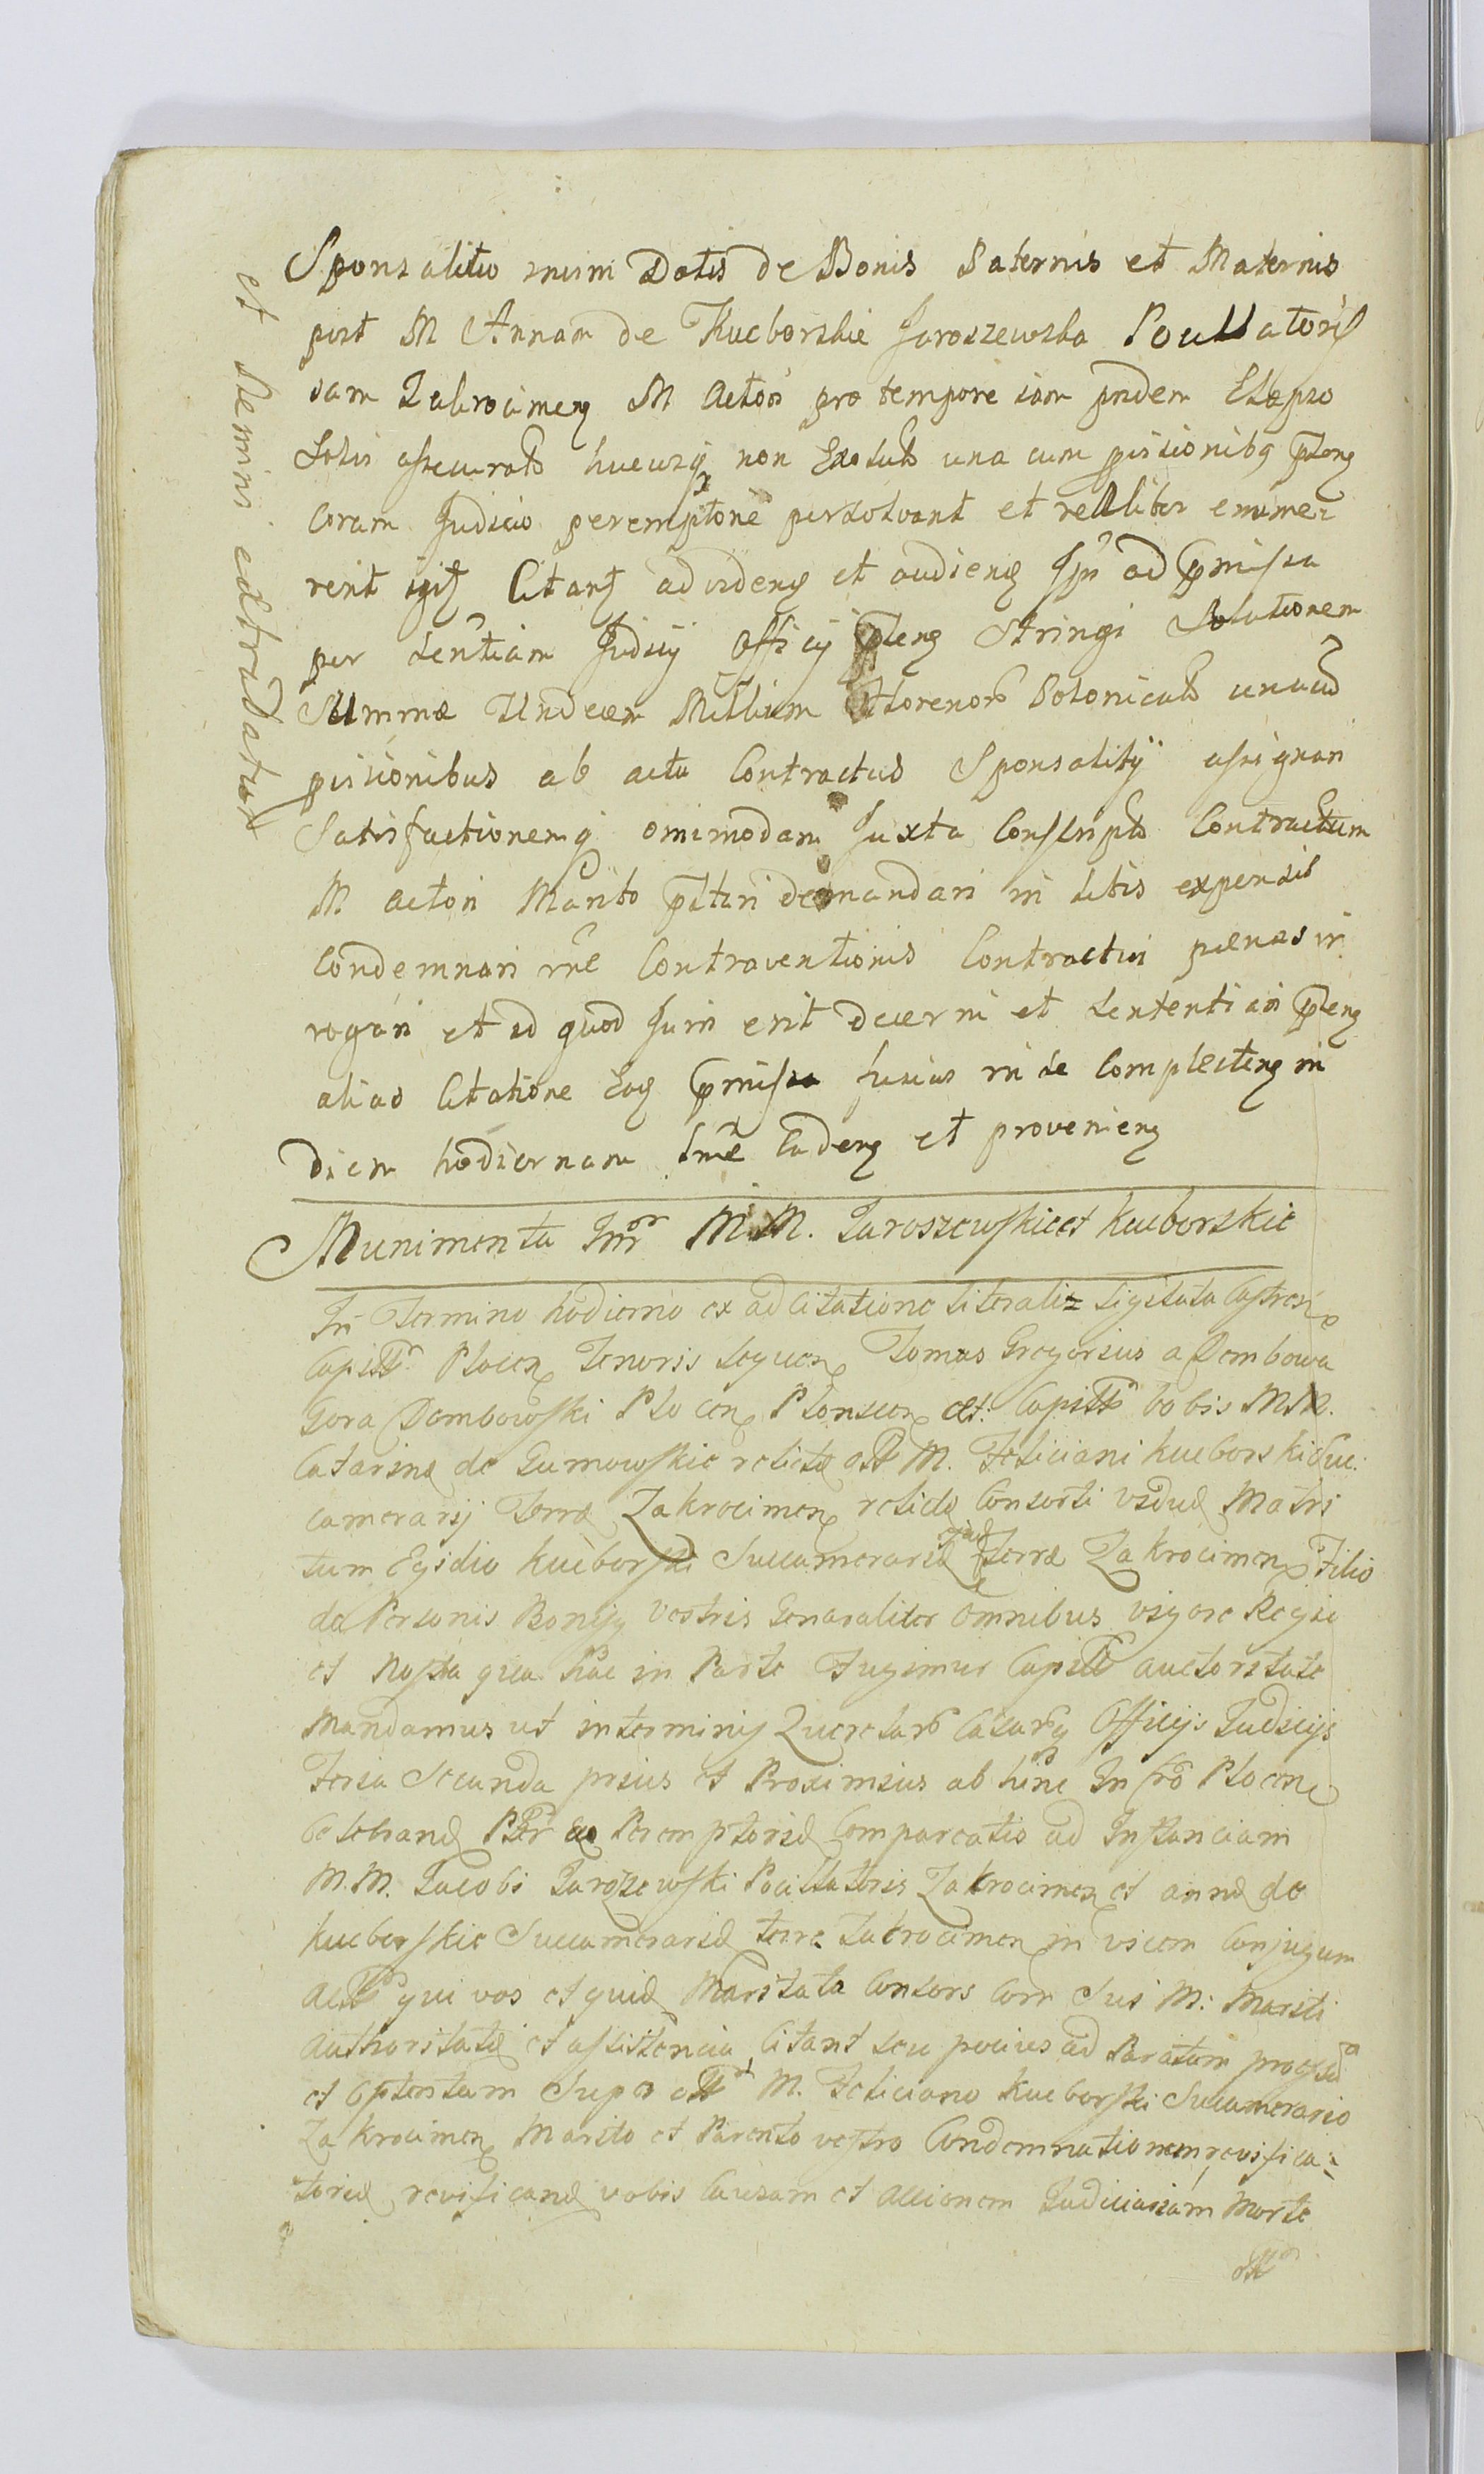 Sponsalitio enim Dotis de Bonis Paternis et Maternis
post M Annam de Kucborskie Jaroszewska Pocillatoris
sam Zakrocimen M Actori pro tempore iam pridem Elapso
Solvi assecuratos hucusq non Exolutos una cum provisionibq pnteng
Coram Judicio peremptorie persolvant et realiter enume
rent igitur Citant ad videng et audieng Ipsi ad pmissa
per Sentiam Judicij Officij pnteng Stringi Solutionem
Summæ Undecem Millium Florenor Polonicals unacu
pisionibus ab actu Contractus Sponsalitij assignari
Satisfactionemq omimodam Juxta Conscripts Contractum
M actori Marito demandari in litis expensis
Condemnari rne Contraventionis Contractui pænas ir
rogari et id quod Juris erit decerni et Sententiari pnteng
alias Citatione Eaq pmissa fusius in se Complecteng in
Diem hodiernam Sme Cadeng et provenieng
et Nemini extradatur
Munimenta Inr M.M. Jaroszewskie et Kucborskie
In Termino hodierno ex ad Citatione literali Sigilata Castren
Capitt Plocen Tenoris Sequen Tomas Gregorius a Dembowa
Gora Dembowski Plocen Plonscen et. Capitt Vobis M.M.
Catarinæ de Gumowskie relictæ olt M. Feliciani Kucborski Suc:
camerarij Terræ Zakrocimen relictæ Consorti viduæ Matri
tum Egidio Kucborski Succamerarid ejusd Terræ Zakrocimen Filio
de Personis Bonisq Vestris Generaliter Omnibus vigore Regia
et Nostra qua hac in Parte Fugimur Capitt auctoritate
Mandamus ut in terminis Querelarũ Causarq Officijs Judicijs
Feria Secunda prius et Proximius ab hinc In Cro Plocen
Celebrand Peremptorie Compareatis ad Instanciam
M.M. Jacobi Jaroszewski Pocillatoris Zakrocimen et annæ de
Kucborskie Succamerarid terre Zakrocimen in vicem Conjugum
act qui vos et quid Maritata Consors Sui M: Mariti
Authoritate et assistencia Citant seu pocius ad Paratum
et Optentum Super olt M. Feliciano Kucborski Succamerario
Zakrocimen Marito et Parente vestro Condemnationem revifica:
torid revificand vobis Causam et Accionem Judiciariam Morte
olt